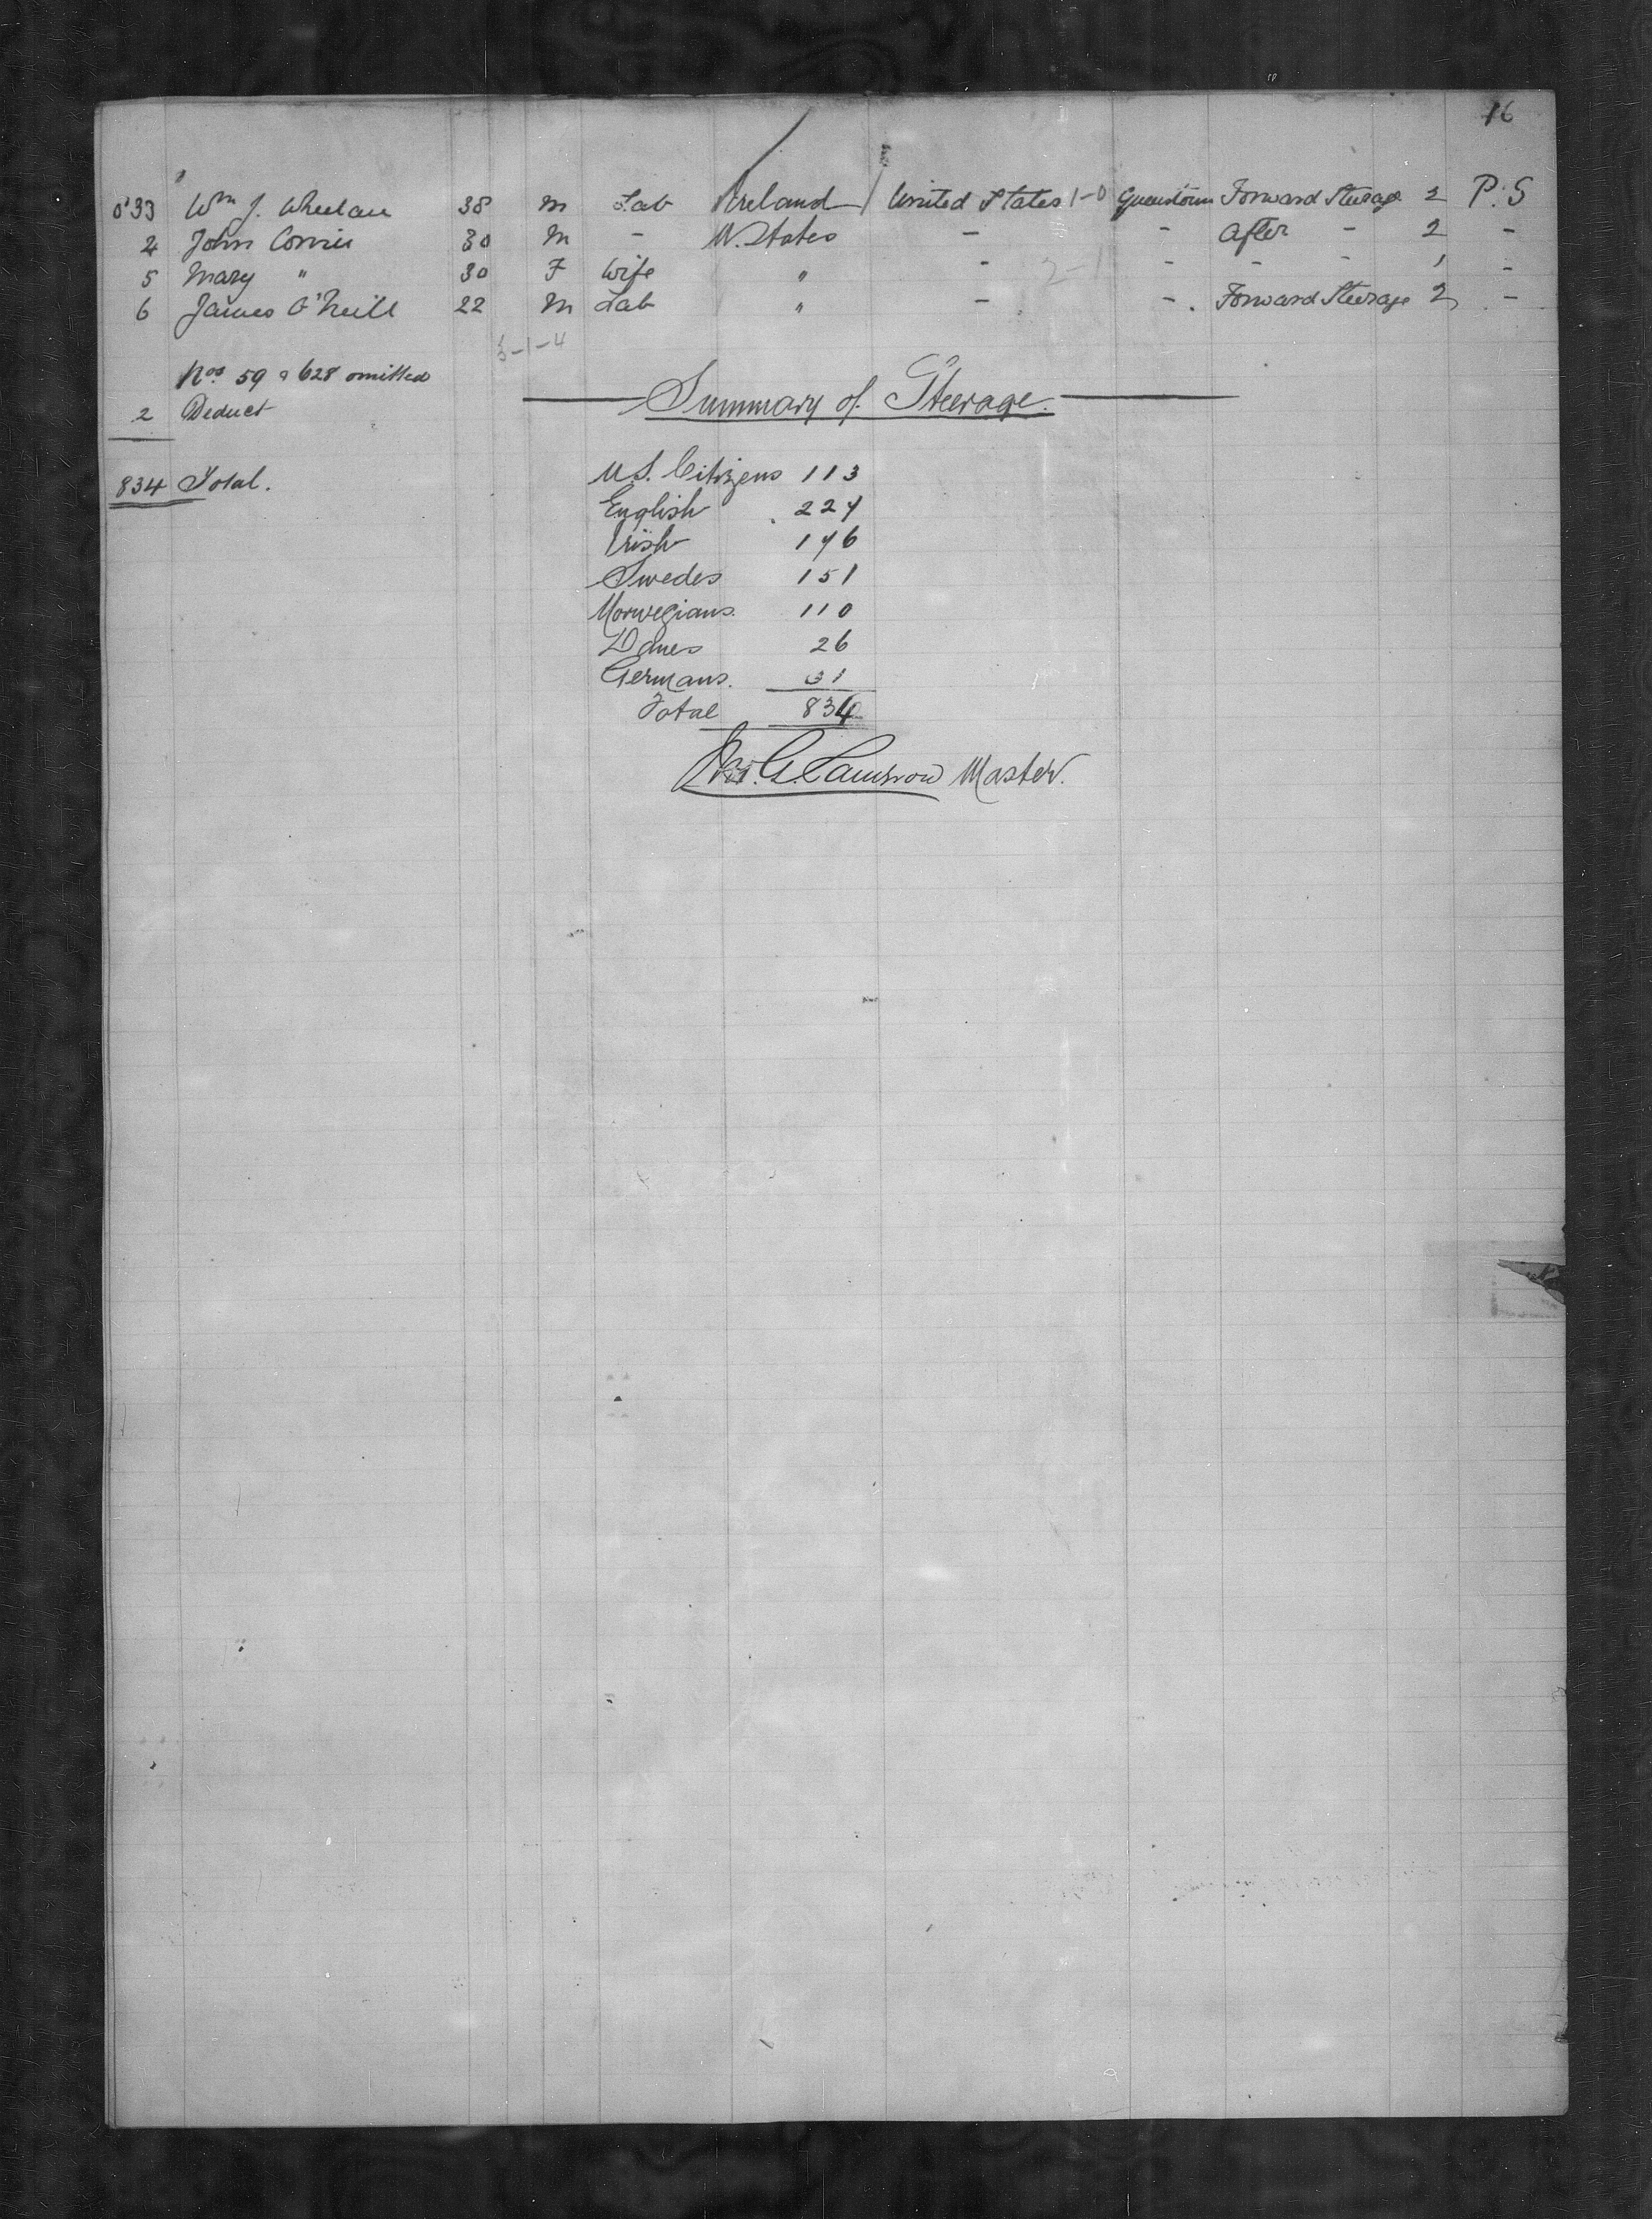 16
833 Wm J. Whelan 38 M Lab Ireland United States 1-0 Queenstown Forward Steerage 2 P. S
4 John 30 M - U. States - - After - 2 -
5 Mary " 30 F Wife " - 2-1 - - - 1 -
6 James O'Neill 22 M Lab " - - Forward Steerage 2 -
3-1-4
Nos 59 & 628 omitted
2 Deduct
Summary of Steerage.
834 Total.
U.S. Citizens 113
English 227
Irish 176
Swedes 151
Norwegians. 110
Danes 26
Germans. 31
Total 834
Jno. G. Cameron Master.